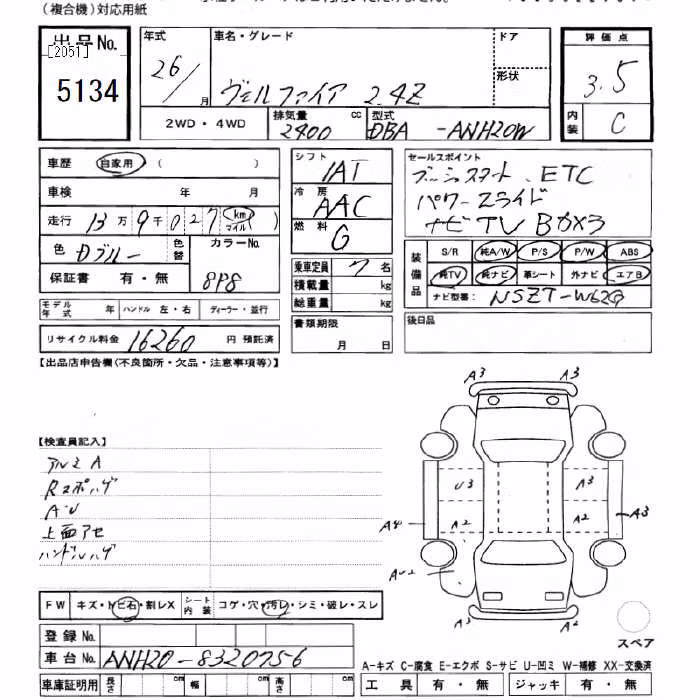 (複合機)対応用紙
出品No.
[2051]
5134
年式
26/
月
車名・グレード
ヴェルファイア 2.4Z
ドア
形状
評価点
3.5
内装
C
2WD・4WD
排気量
2400
cc
型式
DBA -ANH20W
車歴
自家用
(          )
車検
年
月
走行
13万9千027
km
マイル
)
色
Dブルー
色替
カラーNo.
8P8
保証書
有・無
モデル年式
ハンドル 左・右
ディーラー・並行
リサイクル料金
16260
円 預託済
シフト
IAT
冷房
AAC
燃料
G
乗車定員
7
名
積載量
kg
総重量
kg
書類期限
月
日
セールスポイント
プッシュスタート、ETC
パワースライド
ナビTV Bカメラ
装備品
S/R
純A/W
P/S
P/W
ABS
純TV
純ナビ
革シート
外ナビ
エアB
ナビ型番:
NSZT-W62G
後日品
【出品店申告欄(不良箇所・欠品・注意事項等)】
【検査員記入】
アルミ A
Rスポハゲ
A・U
上面アセ
ハンドルハゲ
A3
A3
U3
A3
A4
A2
A2
A3
AU2
A2
A2
スペア
FW
キズ・トビ石・割レX
シート内装
コゲ・穴・汚レ・シミ・破レ・スレ
登録No.
車台No.
ANH20-8320756
車庫証明用
長さ
cm
幅
cm
高さ
cm
A-キズ C-腐食 E-エクボ S-サビ U-凹ミ W-補修 XX-交換済
工具
有・無
ジャッキ
有・無